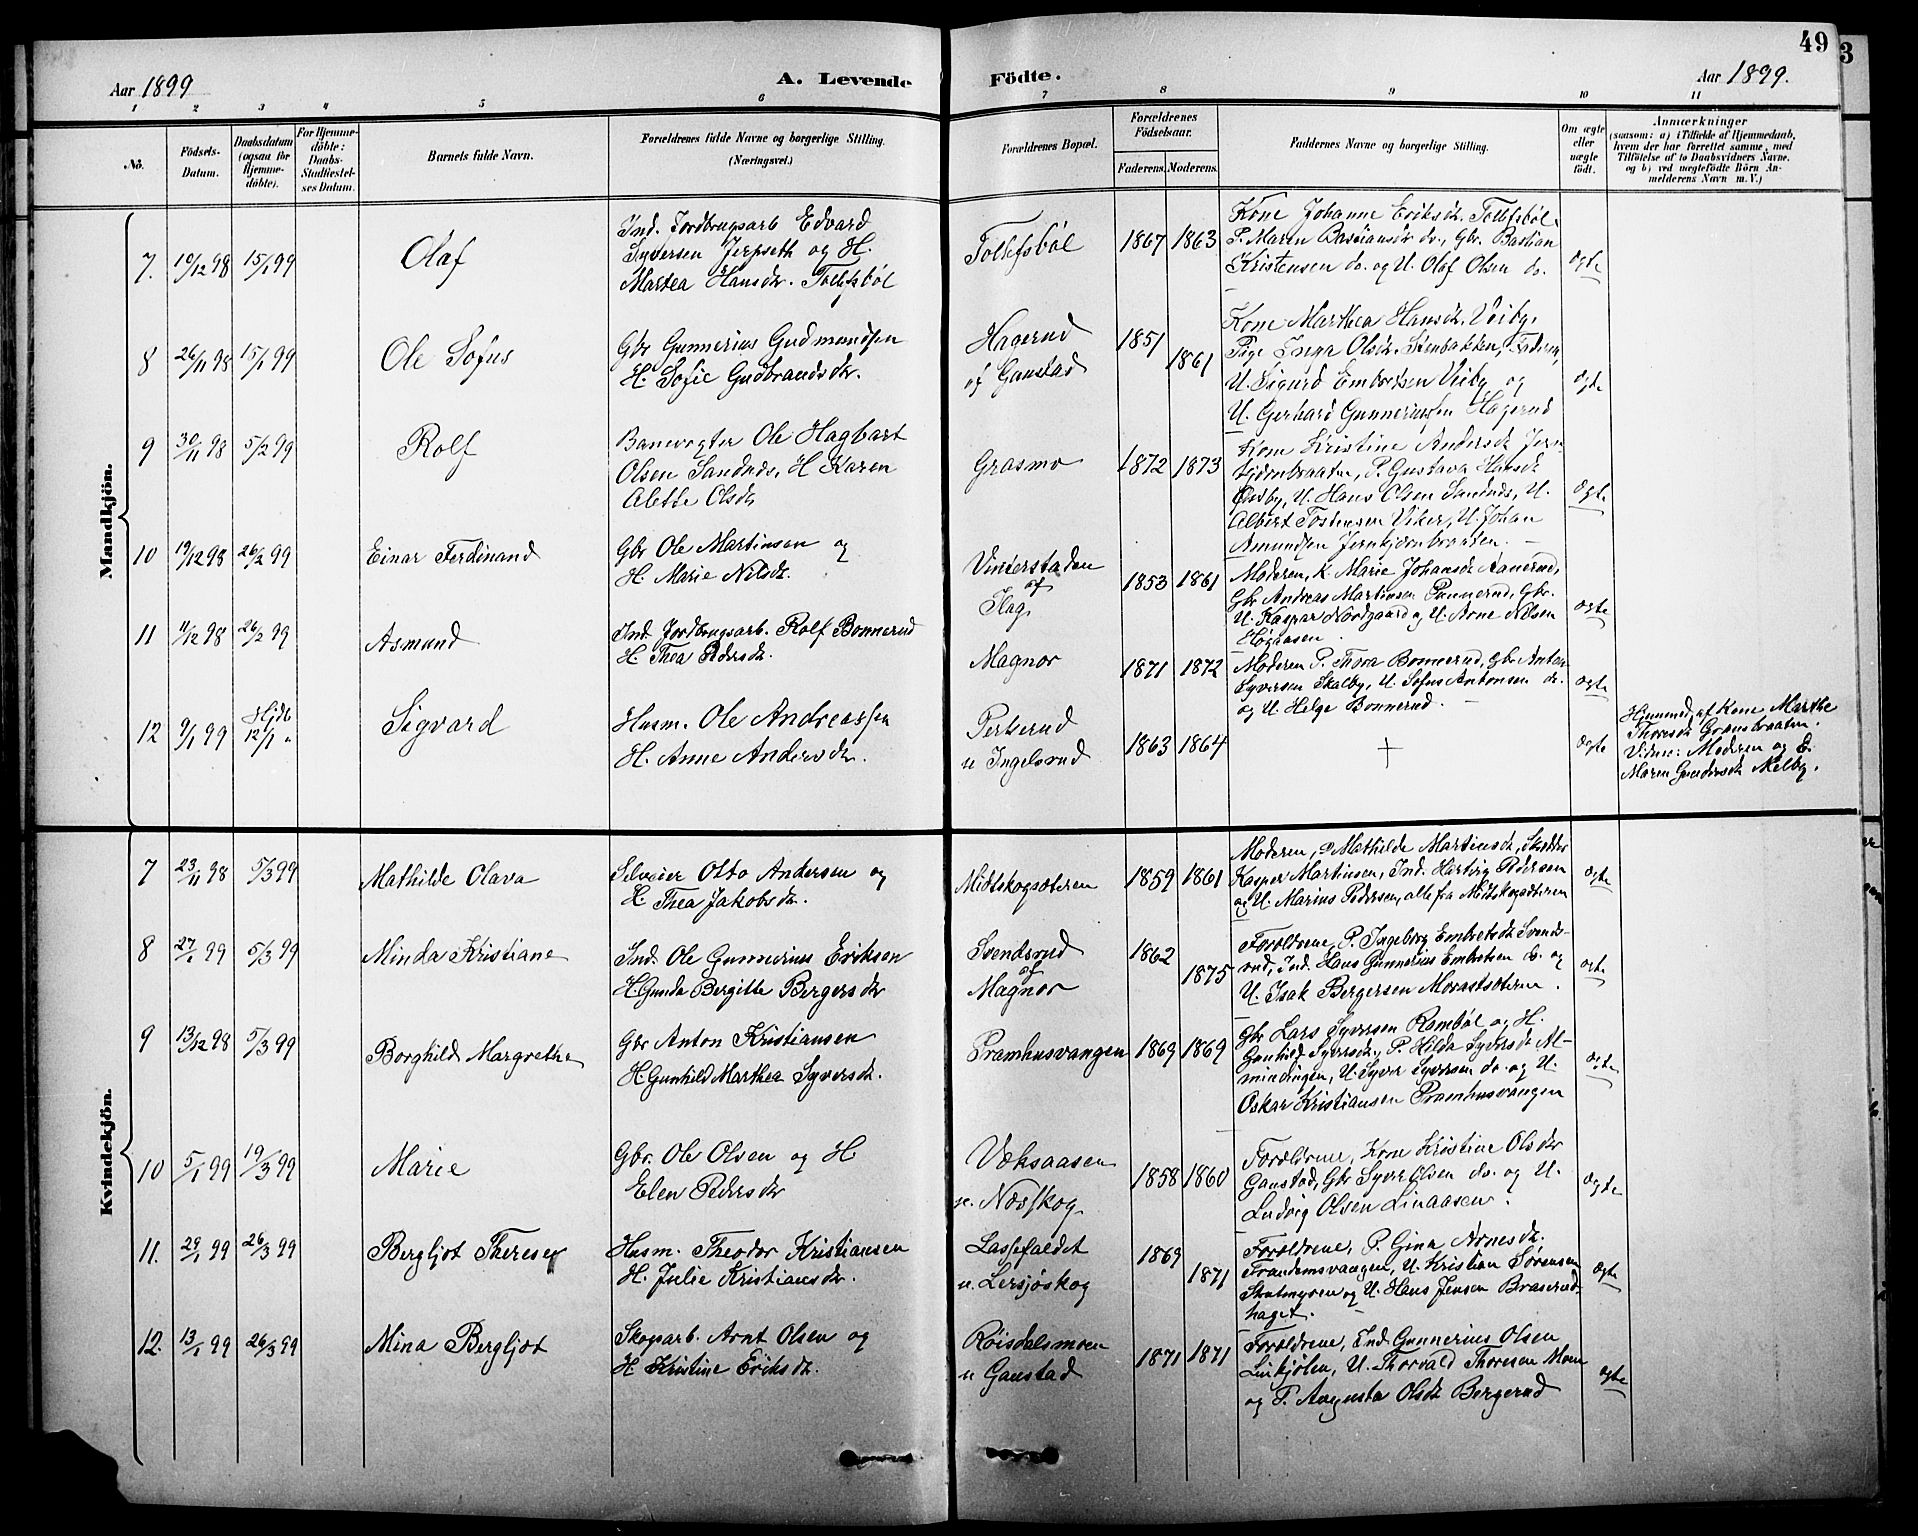 49
3
Aar 1899
A. Levende
Födte.
Aar 1899.
1 2 3 4 5 6 7 8 9 10 11
No.
Födsels-
Datum.
Daabsdatum
(ogsaa for
Hjemme-
döbte).
For Hjemme-
döbte:
Daabs-
Stadfæstel-
ses Datum.
Barnets fulde Navn.
Forældrenes fulde Navne og borgerlige Stilling.
(Næringsvei.)
Forældrenes Bopæl.
Forældrenes
Födselsaar.
Faderens.
Moderens.
Faddernes Navne og borgerlige Stilling.
Om ægte
eller
uægte
födt.
Anmærkninger
(saasom: a) i Tilfælde af Hjemmedaab,
hvem der har forrettet samme, med
Tilföielse af to Daabsvidners Navne,
og b) ved uægtefödte Börn An-
melderens Navn m. V.)
Mandkjön.
7. 10/12 98 15/1 99
Olaf
Ind. Jordbrugsarb Edvard
Syversen Jerpseth og H.
Martea Hansdr. Tollefsbøl
Tollefsbøl
1867 1863
Kone Johanne Eriksdr. Tollefsbøl
P. Maren Bastiansdr do., Gbr. Bastian
Kristensen do. og U. Olaf Olsen do.
ægte
8 26/11 98 15/1 99
Ole Sofus
Gbr Gunnerius Gudmundsen
H. Sofie Gudbrandsdr.
Hagerud
af Gaustad
1851 1861
Kone Marthea Hansdr. Veiby,
Pige Inga Olsdr. Stenbakken, Faderen,
U. Sigurd Embretsen Veiby og
U. Gerhard Gunneriussen Hagerud
ægte
9 30/11 98 5/2 99
Rolf
Banevogter Ole Hagbart
Olsen Sandnæs, H Karen
Alette Olsdr
Grasmo
1872 1873
Kone Kristine Andersdr Jern-
tjernbraaten, P. Gustava Hansdr
Østby, U. Hans Olsen Sandnæs, U.
Albert Tostensen Viker, U. Johan
Amundsen Jerntjernbraaten.
ægte
10 19/12 98 26/2 99
Einar Ferdinand
Gbr Ole Martinsen og
H. Marie Nilsdr.
Vinterstaden
af
Slag
1853 1861
Moderen, K. Marie Johansdr Aanerud,
Gbr Andreas Martinsen Pannerud, Gbr.
U. Kaspar Nordgaard og U. Arne Nilsen
Høgaasen
ægte
11 11/12 98 26/2 99
Asmund
Ind Jordbrugsarb. Rolf Bonnerud
H. Thea Pedersdr.
Magnor
1871 1872
Moderen P. Thora Bonnerud, Gbr Anton
Syversen Skalby, U. Sofus Antonsen do.
og U. Helge Bonnerud.
ægte
12 9/1 99 Hjdb 12/1 "
Sigvard
Husm. Ole Andreassen
H. Anne Andersdr.
Perserud
u Ingelsrud
1863 1864
+
ægte
Hjemmed. af Kone Marthe
Thoresdr Gransbraaten.
Vidne: Moderen og E.
Maren Gundersdr Melby.
Kvindekjön.
7 23/11 98 5/3 99
Mathilde Olava
Selveier Otto Andersen og
H. Thea Jakobsdr.
Midtskogsæteren
1859 1861
Moderen, P Mathilde Martinsdr, Skrædder
Kasper Martinsen, Ind. Hartvig Pedersen
og U. Marius Pedersen, alle fra Midtskogsæteren
ægte
8 27/1 99 5/3 99
Minda Kristiane
Ind. Ole Gunnerius Eriksen
H. Gunda Bergitte Bergersdr
Svendsrud
af
Magnor
1862 1875
Forældrene, P. Ingeborg Embretsdr Svends-
rud, Ind. Hans Gunnerius Embretsen do. og
U. Isak Bergersen Morastsæteren.
ægte
9 13/12 98 5/3 99
Borghild Margrethe
Gbr Anton Kristiansen
H. Gunhild Marthea Syversdr.
Pramhusvangen
1869 1869
Gbr Lars Syversen Rambøl og H.
Gunhild Syversdr., P. Hilda Syversdr M-
mindingen, U. Syver Syversen do. og U.
Oskar Kristiansen Pramhusvangen
ægte
10 5/1 99 19/3 99
Marie
Gbr. Ole Olsen og H
Elen Pedersdr
Væksaasen
u. Næsskog
1858 1860
Forældrene, Kone Kristine Olsdr
Gaustad, Gbr Syver Olsen do. og U.
Ludvig Olsen Linaasen.
ægte
11. 29/1 99 26/3 99
Bergljot Therese
Husm. Theodor Kristiansen
H. Julie Kristiansdr.
Lassefaldet
u. Lersjøskog
1869 1871
Forældrene, P. Gina Arnesdr.
Frandemsvangen, U. Kristian Sørensen
Skulmyren og U. Hans Jensen Braserud-
haget.
ægte
12. 13/1 99 26/3 99
Mina Bergljot
Skogarb. Arnt Olsen og
H. Kristine Eriksdr.
Røisdalsmoen
u Gaustad
1871 1871
Forældrene, Ind Gunnerius Olsen
Linkjølen, U. Thorvald Thoresen Moen
og P. Augusta Olsdr Bergerud
ægte